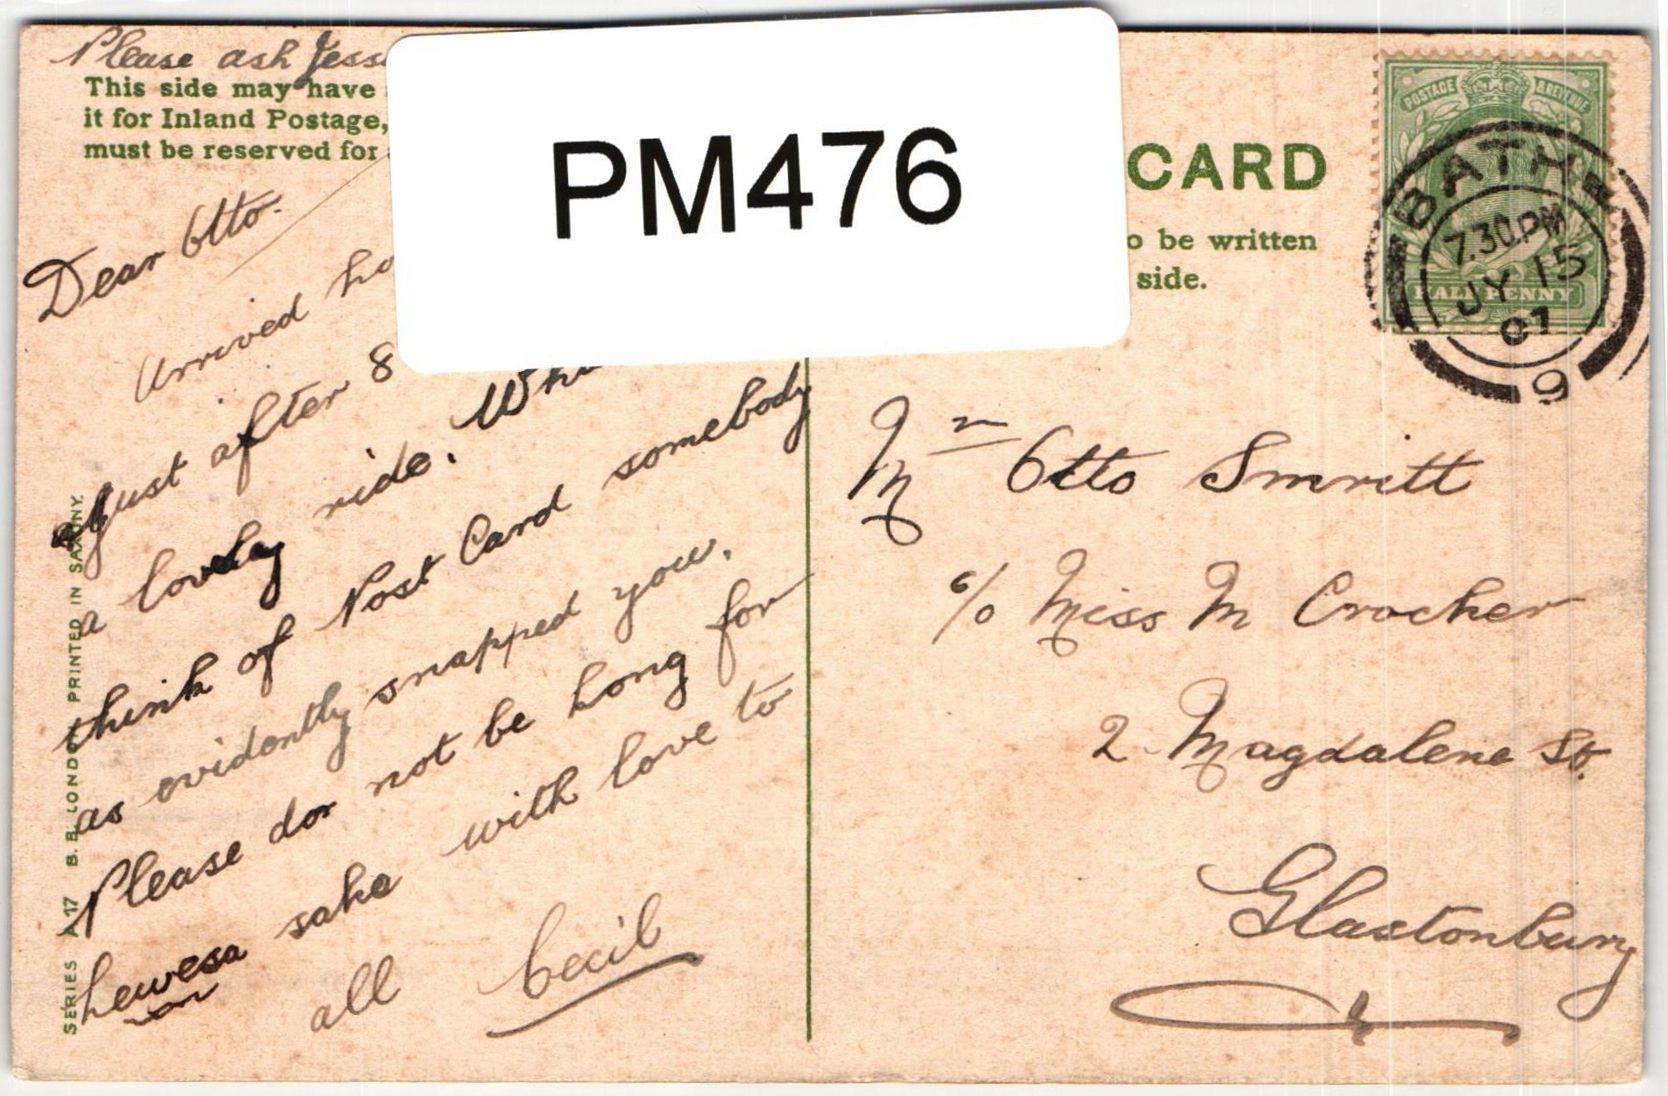 Please ask Jess
This side may have
it for Inland Postage,
must be reserved for
PM476
CARD
o be written
side.
POSTAGE & REVENUE
HALF PENNY
BATH
7.30.PM
JY 15
07
9
Dear Otto.
Arrived ho
just after 8
a lovely ride. Wh
think of Post Card somebody
as evidently snapped you.
Please dor not be long for
sake with love to
all Cecil
Mr Otto Smritt
c/o Miss M Crocker
2 Magdalene St.
Glastonbury
SERIES A 17 B. B. LONDON PRINTED IN SAXONY.